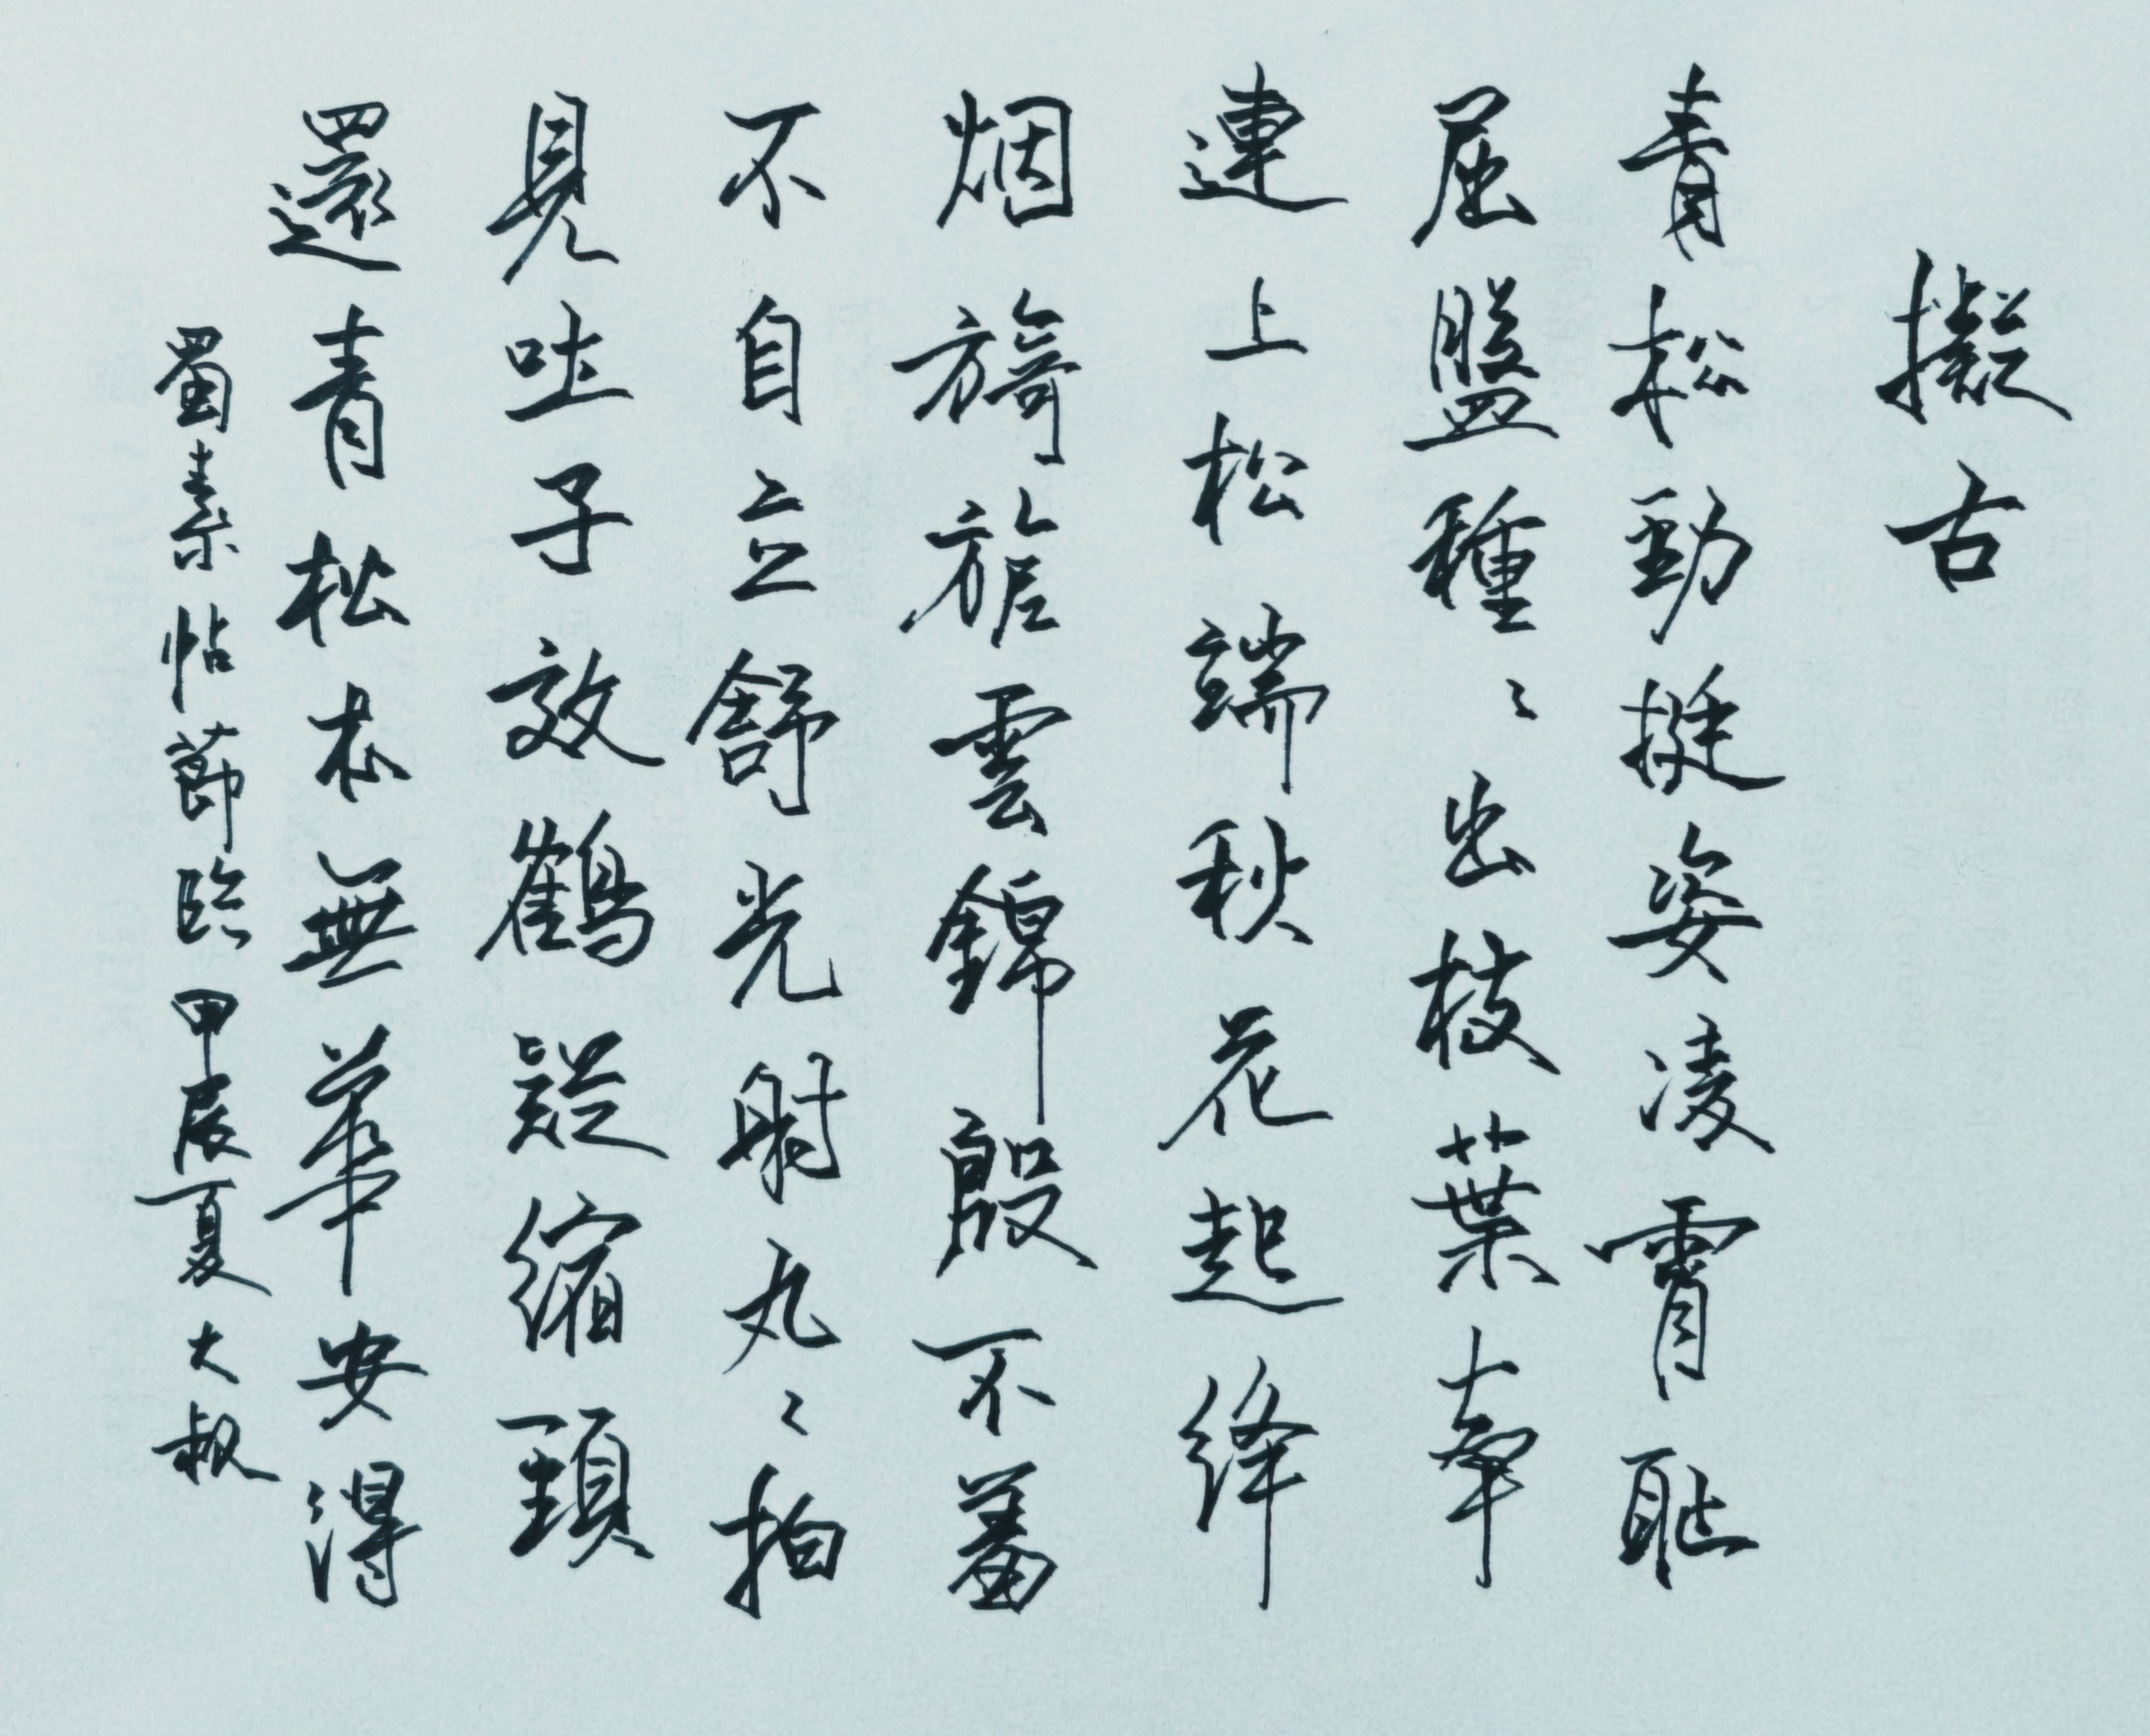 擬古
青松勁挺姿凌霄恥
屈盤種〻出枝葉牽
連上松端秋花起絳
烟旖旎雲錦殷不羞
不自立舒光射丸〻柏
見吐子效鶴疑縮頸
還青松本無華安得
蜀素帖節臨甲辰夏大叔